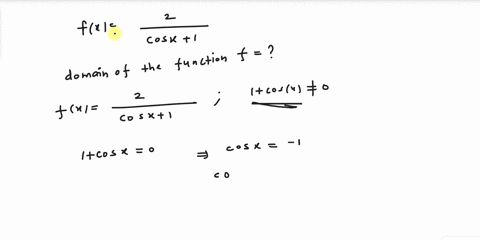 f(x) = 2 / (cosx + 1)
domain of the function f = ?
f(x) = 2 / (cosx + 1) ; 1 + cos(x) ≠ 0
1 + cosx = 0 ⇒ cosx = -1
co